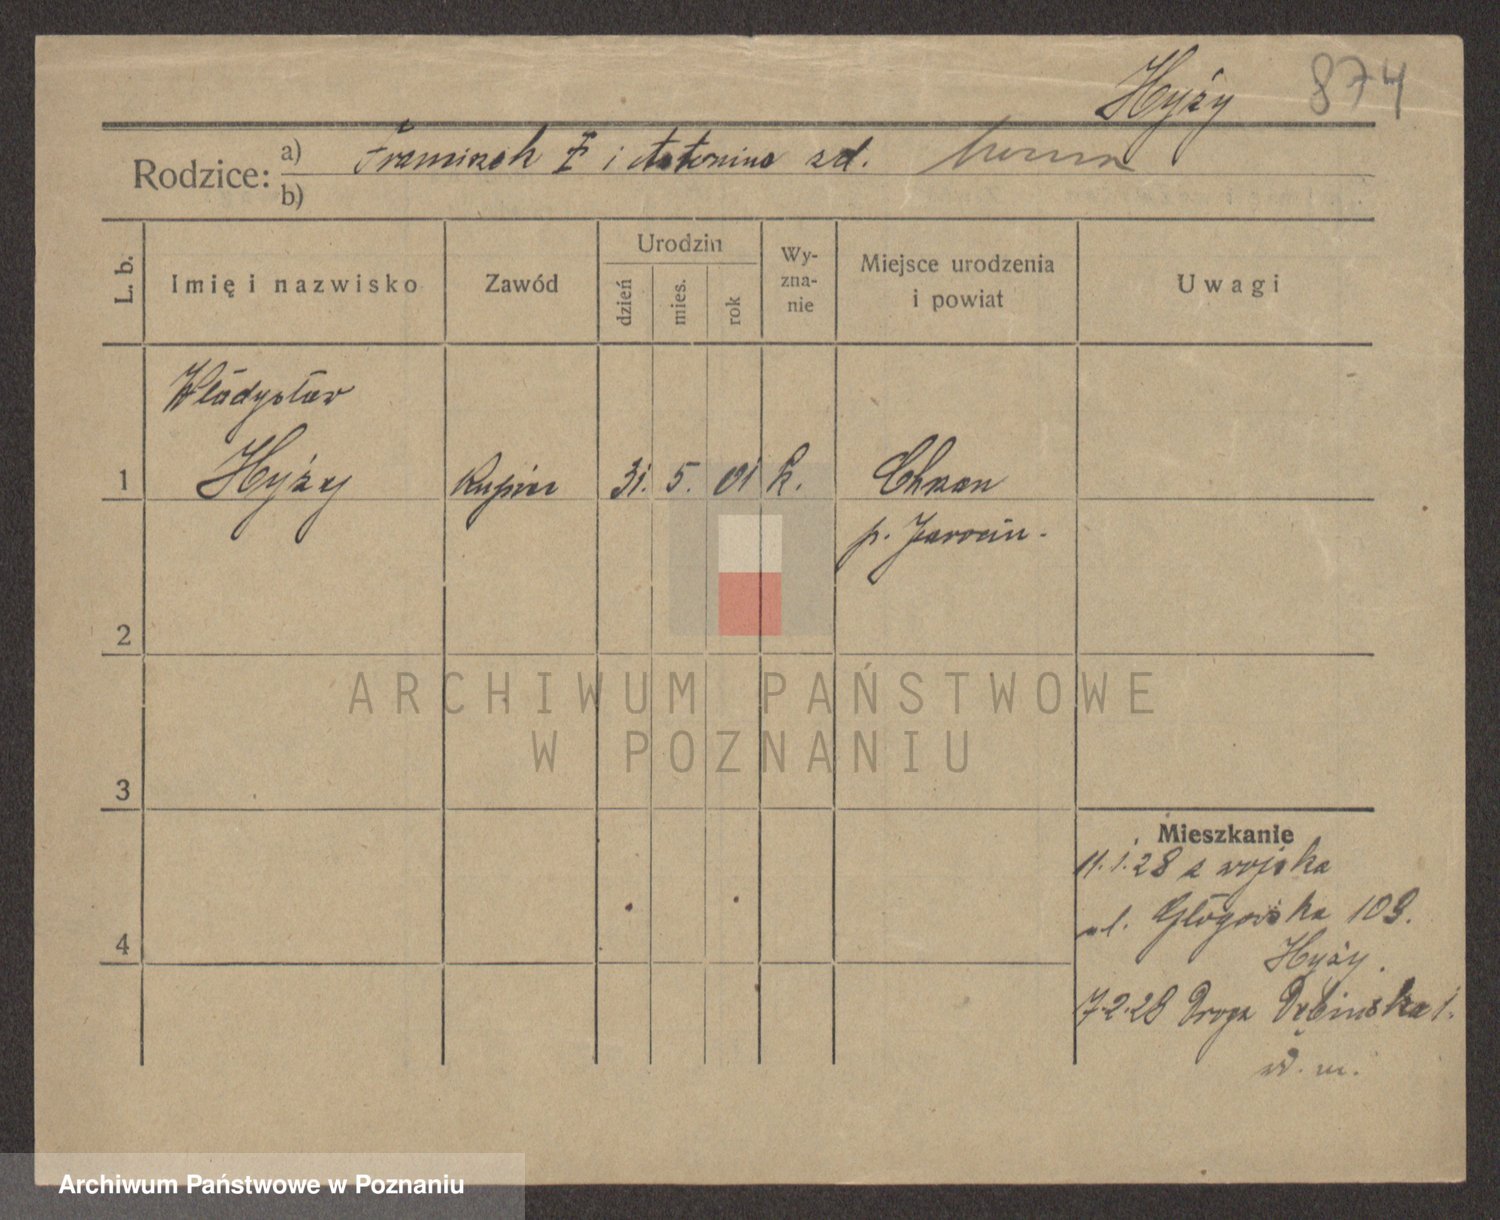 Hyży 874
Rodzice: a) Franciszek i Antonina zd.
b)
L. b. Imię i nazwisko Zawód Urodzin dzień mies. rok Wy-zna-nie Miejsce urodzenia i powiat Uwagi
Władysław
1 Hyży Kupiec 31. 5. 01 k. Chrzan
p. Jarocin.
2
ARCHIWUM PAŃSTWOWE
W POZNANIU
3
Mieszkanie
11.1.28 z wojska
ul. Głogowska 109.
4
Hyży.
7.2.28 Droga Dębinska 1.
w. m.
Archiwum Państwowe w Poznaniu